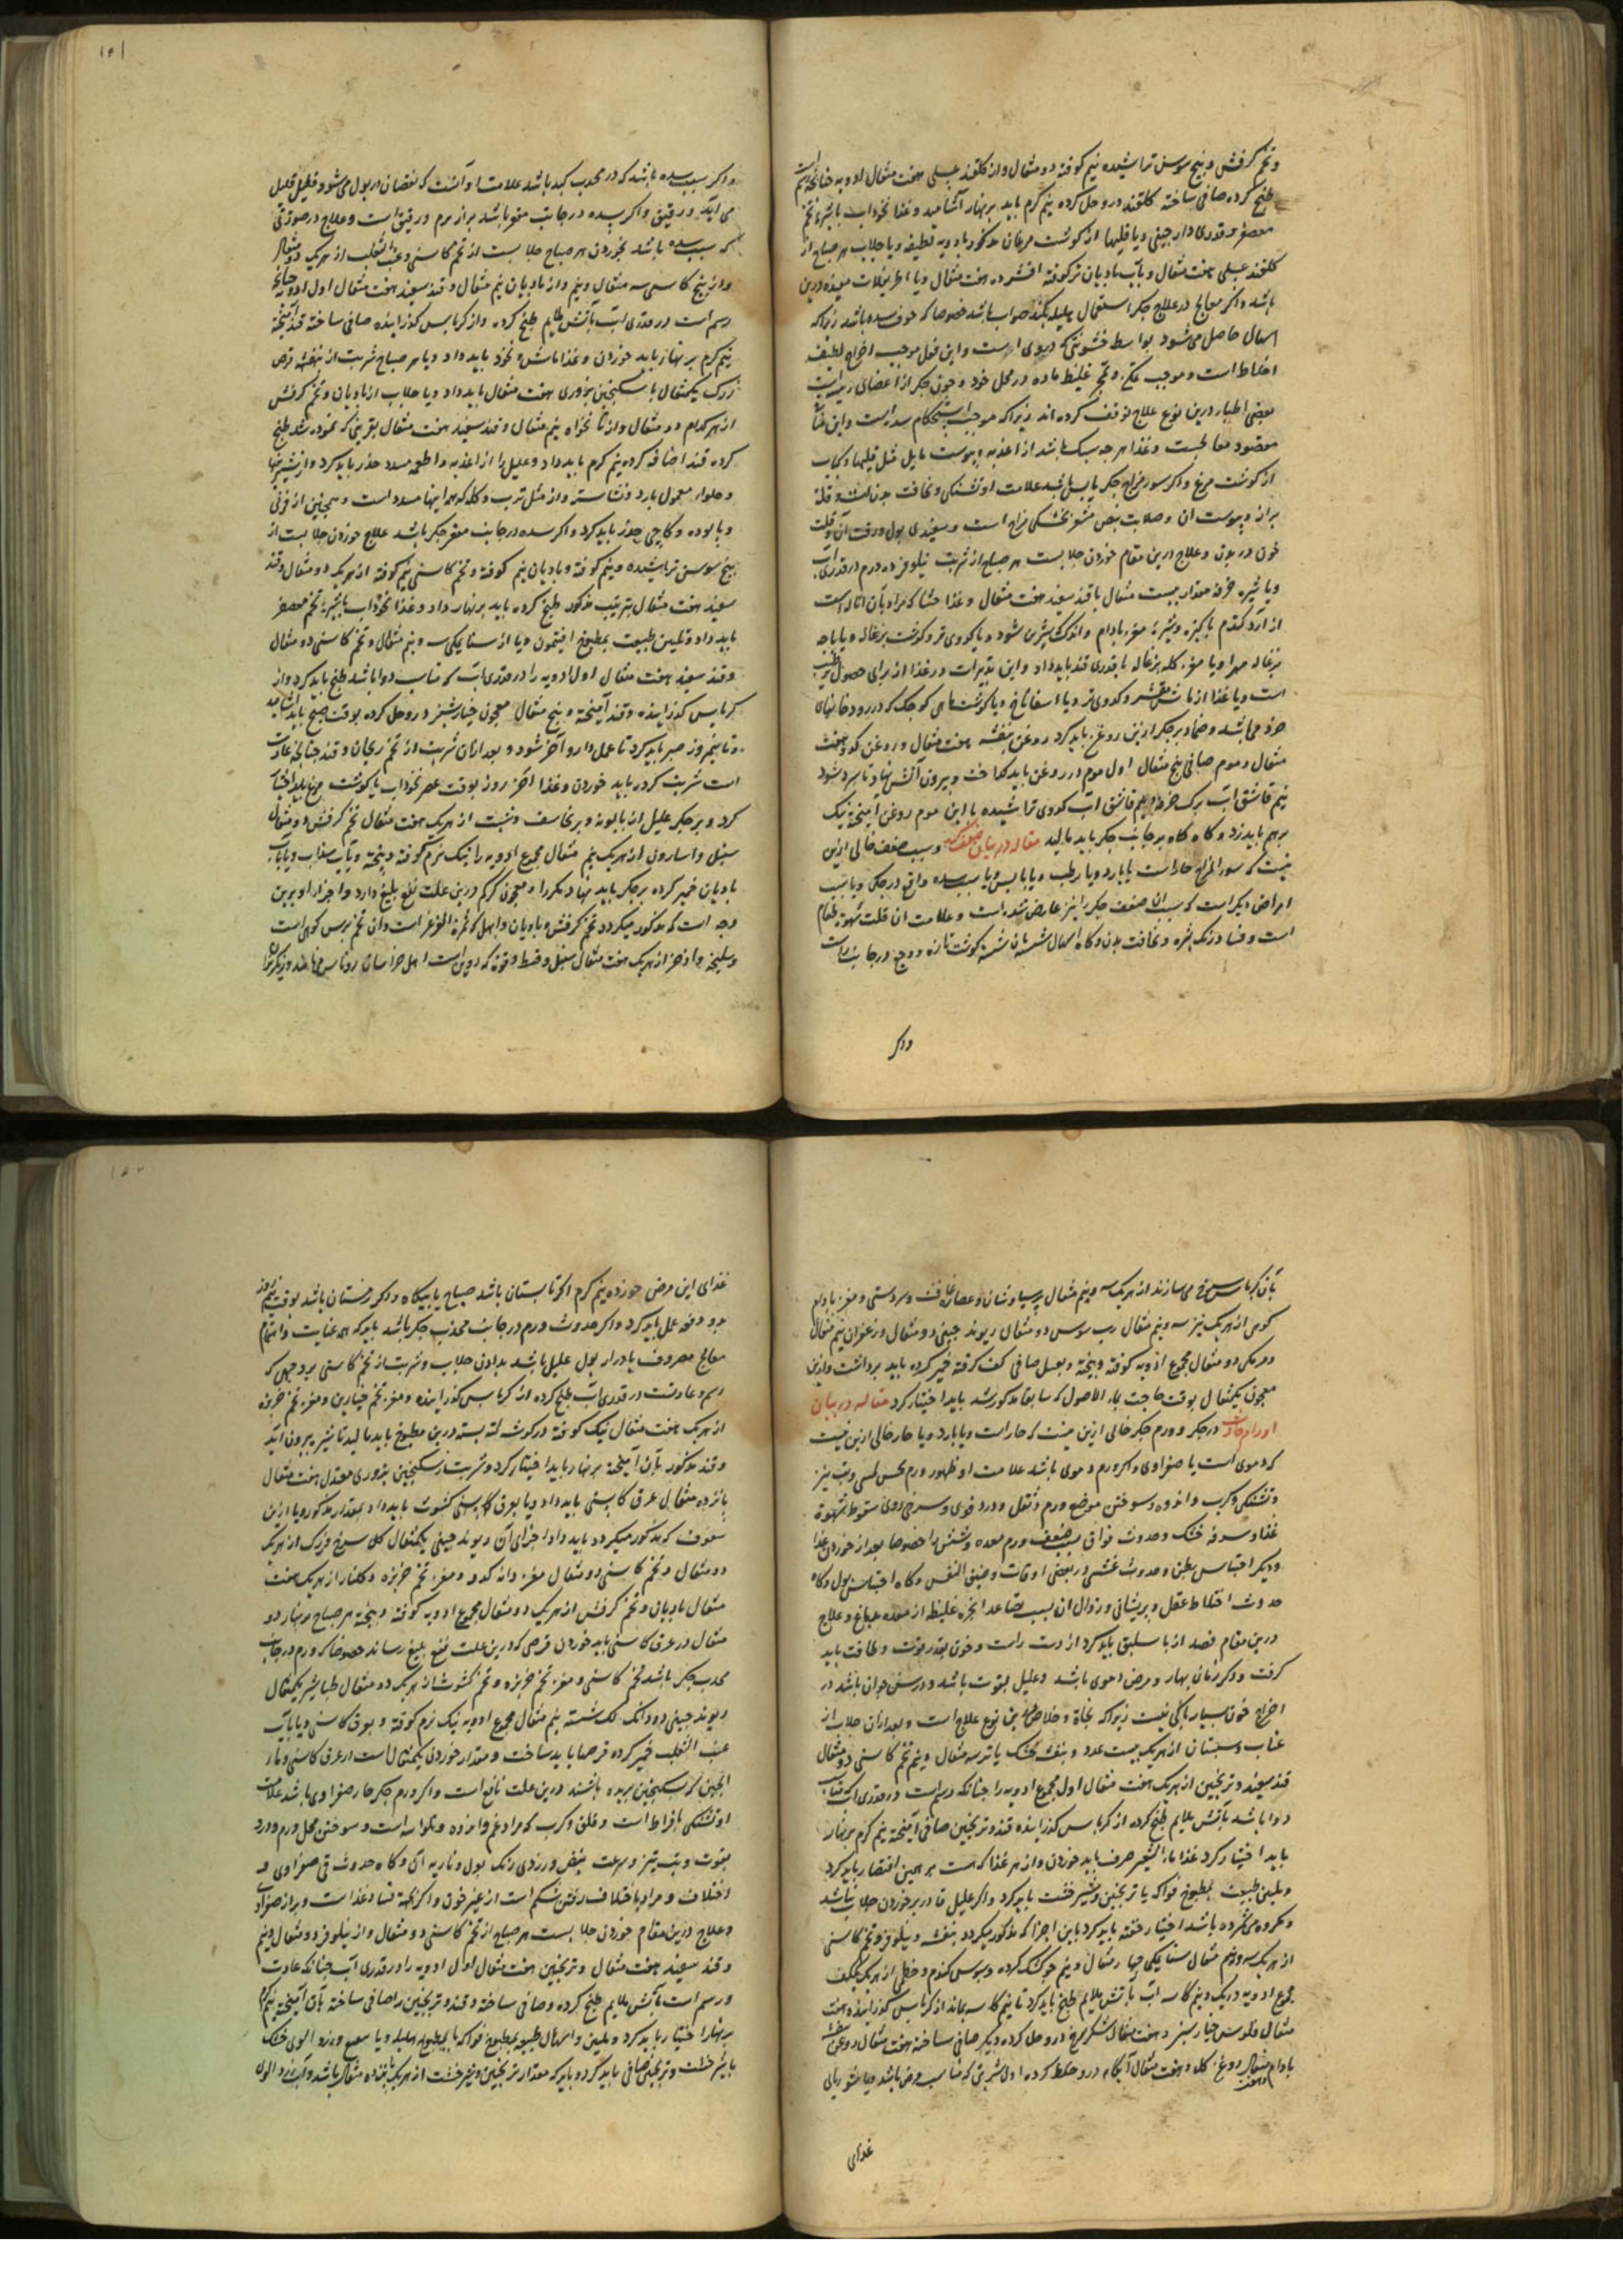 و تخم کرفش و بیخ سوسن تراشیده نیم کوفته دو مثقال و از گلقند عسلی هفت مثقال ادویه چنانچه رسم است
طبخ کرده صافی ساخته گلقند درو حل کرده نیم گرم باید بر نهار آشامید و غذا نخوداب با شیره تخم
معصفر و قدری دارچینی و یا قلیها از گوشت مرغان مذکور با دویه لطیفه و یا جلاب هر صباح از
گلقند عسلی هفت مثقال و بآب بادیان تر کوفته افشرده هفت مثقال و یا اطریفلات مفیده درین
باشد و اگر معالج در علاج جگر استعمال هلیله نکند صواب باشد خصوصا که خوف سده باشد زیرا که
اسهال حاصل می شود بواسطه خشونتی که در وی است و این فعل موجب اخراج لطیف
اخلاط است و موجب غلیظ ماده در محل خود و چون جگر از اعضای رئیسه است
بعضی اطبا درین نوع علاج توقف کرده اند زیرا که موجب استحکام سده است و این
مقصود معالجست و غذا هر چه سبک باشد از اغذیه و یبوست مایل مثل قلیها و کباب
از گوشت مرغ و اگر سور مزاج جگر یابس باشد علامت او تشنگی و نحافت بدنست و قلة
براز و یبوست ان و صلابت نبض مشعر بخشکی مزاج است و سفیدی بول و رقت آن و قلت
خون در بدن و علاج درین مقام خوردن جلابست هر صباح از شربت نیلوفر ده درم در قدری آب
و یا شیره خرفه مقدار بیست مثقال با قند سفید هفت مثقال و غذا حشا که مراد بآن اماله است
از آرد گندم پاکیزه و شیره مغز بادام و اندک شیرین شود و یا کدوی تر و گوشت بزغاله و یا پاچه
بزغاله مهرا و یا مغز کله بزغاله با قدری قند باید داد و این تدبیرات در غذا از برای حصول ترطیب
است و یا غذا از ماش مقشر و کدوی تر و یا اسفاناخ و یا گوشت ماهی کوچک که در رودخانهای
خرد می باشد و ضماد بر جگر ازین روغن باید کرد روغن بنفشه هفت مثقال و روغن کدو هفت
مثقال و موم صافی پنج مثقال اول موم در روغن باید گداخت و بیرون آتش نهاد تا سرد شود
نیم قاشق آب برک خرفه و نیم قاشق آب کدوی تراشیده با این موم روغن آمیخته نیک
بر هم باید زد و گاه گاه بر جانب جگر باید مالید مقاله در بیان ضعف کبد و سبب ضعف خالی ازین
نیست که سور المزاج حار است یا بارد و یا رطب و یا یابس و یا بسبب سده واقع در جگر و یا بسبب
امراض دیگر است که بسبب ان ضعف جگر را نیز عارض شده است و علامت ان قلت شهوة طعام
است و فساد رنک بشره و نحافت بدن و گاه اسهال شبیه بآن شسته گوشت تازه و وجع در جانب راست
واکر
۱۵۱
و اگر بسبب سده باشد که در محدب کبد باشد علامت او آنست که نقصان در بول می شود و قلیل قلیل
می آید و رقیق و اگر سده در جانب مقعر باشد براز نرم و رقیق است و علاج در صورتی
که بسبب سده باشد بخوردن هر صباح جلابست از تخم کاسنی و عنب الثعلب از هر یک دو مثقال
و از بیخ کاسنی سه مثقال و نیم و از بادیان نیم مثقال و قند سفید هفت مثقال اول ادویه چنانچه
رسم است در قدری آب بآتش ملایم طبخ کرده و از کرباس گذرانیده صافی ساخته قند آمیخته
نیم گرم بر نهار باید خوردن و غذا ماش و نخود باید داد و یا هر صباح شربت از بنفشه قرص
زرک یکمثقال با سکنجبین بزوری هفت مثقال باید داد و یا جلاب از بادیان و تخم کرفش
از هر کدام دو مثقال و از نانخواه نیم مثقال و قند سفید هفت مثقال بقریبی که نموده شد طبخ
کرده قند اضافه کرده نیم گرم باید داد و علیل را از اغذیه و اطعمه مسدد حذر باید کرد و از شیرینیها
و حلواء معمول بارد و نشاسته و از مثل ترب و کلم که همه اینها مسدد است و همچنین از فرنی
و پالوده و کاچی حذر باید کرد و اگر سده در جانب مقعر جگر باشد علاج خوردن جلابست از
بیخ سوسن تراشیده و نیم کوفته و بادیان نیم کوفته و تخم کاسنی نیم کوفته از هر یک دو مثقال و قند
سفید هفت مثقال بترتیب مذکور طبخ کرده باید بر نهار داد و غذا نخوداب با شیره تخم معصفر
باید داد و تلیین طبیعت بمطبوخ افتیمون و یا از سنا مکی سه و نیم مثقال و تخم کاسنی دو مثقال
و قند سفید هفت مثقال اول ادویه را در قدری آب که مناسب دوا باشد طبخ باید کرد و از
کرباس گذرانیده و قند آمیخته و پنج مثقال معجون خیارشنبر درو حل کرده بوقت صبح باید آشامید
و تا نیم روز صبر باید کرد تا عمل دارو آخر شود و بعد ازان شربت از تخم ریحان و قند چنانچه عادت
است شربت کرده باید خوردن و غذا آخر روز بوقت عصر نخوداب با گوشت مرغ باید اختیار
کرد و بر جگر علیل از بابونه و برنجاسف و شبت از هر یک هفت مثقال تخم کرفش دو مثقال
سنبل و اسارون از هر یک نیم مثقال مجموع ادویه را نیک نرم کوفته و بیخته و بآب سداب و یا بآب
بادیان خمیر کرده بر جگر باید نهاد مکررا و معجون کرکم درین علت نفع بلیغ دارد و اجزاء او برین
وجه است که مذکور میگردد تخم کرفش و بادیان و ابهل که ثمرة العرعر است و ان تخم برس کوهی است
و سلیخه و اذخر از هر یک هفت مثقال سنبل و قسط و فوه که روین است اهل خراسان روناس میخوانند و دیگر
بآن کرباس سرخ می سازند از هر یک سه و نیم مثقال پرسیاوشان و عصاره غافث و سردستی و مغز بادام
کوهی از هر یک نیز سه و نیم مثقال رب سوس دو مثقال ریوند چینی دو مثقال و زعفران نیم مثقال
و مر مکی دو مثقال مجموع ادویه کوفته و بیخته و بعسل صافی کف گرفته خمیر کرده باید برداشت و ازین
معجون یکمثقال بوقت حاجت بماء الاصول که سابقا مذکور شد باید اختیار کرد مقاله در بیان
اورام حادث در جگر و ورم جگر خالی ازین نیست که حار است و یا بارد و یا حار خالی ازین نیست
که دموی است یا صفراوی و اگر ورم دموی باشد علامت او ظهور ورم بحس لمس و تب نیز
و تشنگی و کرب و اندوه و سوختن موضع ورم و ثقل و درد قوی و سرخی روی سقوط شهوة
غذا و سرفه خشک و حدوث فواق بسبب ضعف ورم معده و شش را خصوصا بعد از خوردن غذا
و دیگر احتباس بطن و حدوث غشی در بعضی اوقات و ضیق النفس و گاه احتباس بول و گاه
حدوث اختلاط عقل و پریشانی و زوال ان بسبب تصاعد ابخره غلیظ از معده بدماغ و علاج
درین مقام فصد از باسلیق باید کرد از دست راست و خون بقدر قوت و طاقت باید
گرفت و اگر زمان بهار و مرض دموی باشد و علیل بقوت باشد و در سن جوان باشد در
اخراج خون بسیار باکی نیست زیرا که نجاة و خلاص درین نوع علاج است و بعد ازان جلاب از
عناب و سبستان از هر یک بیست عدد و بنفشه خشک یا تر سه مثقال و نیم تخم کاسنی دو مثقال
قند سفید و ترنجبین از هر یک هفت مثقال اول مجموع ادویه را چنانکه رسم است در قدری آب که مناسب
دوا باشد بآتش ملایم طبخ کرده از کرباس گذرانیده قند و ترنجبین صافی آمیخته نیم گرم بر نهار
باید اختیار کرد غذا ماء الشعیر صرف باید خوردن و از هر غذا که هست بر همین اقتصار باید کرد
و تلیین طبیعت بمطبوخ فواکه یا ترنجبین و شیرخشت باید کرد و اگر علیل قادر بر خوردن جلاب نباشد
و مکروه می شمرده باشد اختیار حقنه باید کرد باین اجزا که مذکور میگردد بنفشه و نیلوفر و تخم کاسنی
از هر یک سه و نیم مثقال سنا مکی چهار مثقال و نیم جو کشک کرده و سبوس گندم و خطمی از هر یک یک کف
مجموع ادویه در یک و نیم کاسه آب بآتش ملایم طبخ باید کرد تا نیم کاسه بماند از کرباس گذرانیده هفت
مثقال فلوس خیارشنبر و هفت مثقال شکر سرخ درو حل کرده دیگر صافی ساخته هفت مثقال روغن بنفشه
بادام و هفت مثقال روغن گل و هفت مثقال آبکامه درو خلط کرده اول شربتی که مناسب مرض باشد
غذای
۱۵۲
غذای این مرض خورده نیم گرم اگر تابستان باشد صباح یا بیگاه و اگر زمستان باشد بوقت نیم روز
بدو دفعه عمل باید کرد و اگر حدوث ورم در جانب محدب جگر باشد باید که همه عنایت و اهتمام
معالج مصروف بادرار بول علیل باشد بدادن جلاب و شربت از تخم کاسنی بر وجهی که
رسم و عادتست در قدری آب طبخ کرده از کرباس گذرانیده و مغز تخم خیارین و مغز تخم خربزه
از هر یک هفت مثقال نیک کوفته در گوشه لته بسته درین مطبوخ باید مالید تا شیره بیرون آید
و قند مذکور بآن آمیخته بر نهار باید اختیار کرد و شربت از سکنجبین بزوری معتدل هفت مثقال
پانزده مثقال عرق کاسنی باید داد و یا بعرق کاسنی کشوث باید داد بمقدار مذکور و یا ازین
سفوف که مذکور میگردد باید داد اجزای آن ریوند چینی یکمثقال گل سرخ و زرک از هر یک
دو مثقال و تخم کاسنی دو مثقال مغز دانه کدو و مغز تخم خربزه و گلنار از هر یک هفت
مثقال بادیان و تخم کرفش از هر یک دو مثقال مجموع ادویه کوفته و بیخته هر صباح بر نهار دو
مثقال در عرق کاسنی باید خوردن قرصی که درین علت نفع بلیغ رساند خصوصا که ورم در جانب
محدب جگر باشد تخم کاسنی و مغز تخم خربزه و تخم کشوث از هر یک دو مثقال طباشیر یکمثقال
ریوند چینی دو دانگ لک شسته نیم مثقال مجموع ادویه نیک نرم کوفته و بعرق کاسنی و یا بآب
عنب الثعلب خمیر کرده قرصها باید ساخت و مقدار خوردن یکمثقال است از عرق کاسنی و ماء
الجبن که بسکنجبین بریده باشند درین علت نافع است و اگر ورم جگر حار صفراوی باشد علامت
او تشنگی بافراط است و قلق و کرب که مراد غم و اندوه و تلواسه است و سوختن محل ورم و درد
بقوت و تب تیز و سرعت نبض و زردی رنگ بول و ناریه آن و گاه حدوث قی صفراوی و
اختلاف و مراد باختلاف رفتن شکم است از غیر خون و اگر نه فساد غذاست و براز صفراوی
و علاج درین مقام خوردن جلابست هر صباح از تخم کاسنی دو مثقال و از نیلوفر دو مثقال و نیم
و قند سفید هفت مثقال و ترنجبین هفت مثقال اول ادویه را در قدری آب چنانکه عادت
و رسم است بآتش ملایم طبخ کرده و صافی ساخته و قند و ترنجبین را صافی ساخته بآن آمیخته نیم گرم
بر نهار اختیار باید کرد و تلیین و اسهال طبیعه بمطبوخ فواکه یا بمطبوخ هلیله و یا الوی خشک
با شیرخشت و ترنجبین صافی باید کرد و باید که مقدار ترنجبین و شیرخشت از هر یک پانزده مثقال باشد و آب زرد الوی